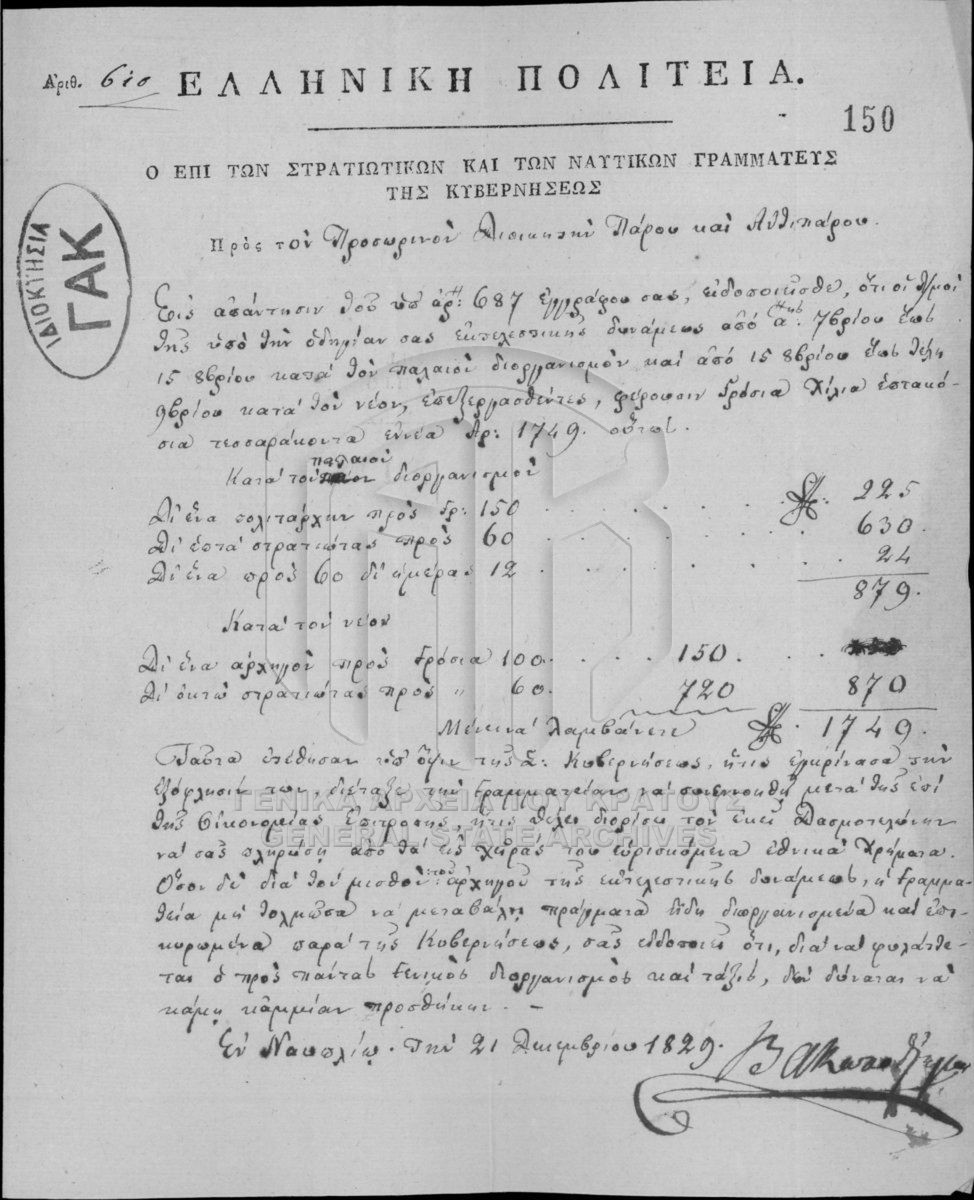 Ἀριθ.
ΕΛΛΗΝΙΚΗ ΠΟΛΙΤΕΙΑ.
150
Ο ΕΠΙ ΤΩΝ ΣΤΡΑΤΙΩΤΙΚΩΝ ΚΑΙ ΤΩΝ ΝΑΥΤΙΚΩΝ ΓΡΑΜΜΑΤΕΥΣ
ΤΗΣ ΚΥΒΕΡΝΗΣΕΩΣ
ΙΔΙΟΚΤΗΣΙΑ
ΓΑΚ
Πρὸς τὸν Προσωρινὸν Διοικητὴν Πάρου καὶ Ἀντιπάρου.
Εἰς ἀπάντησιν τοῦ ὑπ' ἀρ: 687 ἐγγράφου σας, εἰδοποιεῖσθε, ὅτι οἱ μισθοὶ
τῆς ὑπὸ τὴν ὁδηγίαν σας ἐκτελεστικῆς δυνάμεως ἀπὸ α: 7βρίου ἕως
15 8βρίου κατὰ τὸν παλαιὸν διοργανισμὸν καὶ ἀπὸ 15 8βρίου ἕως τέλη
9βρίου κατὰ τὸν νέον, ἐπεξεργασθέντες, φέρουσιν Γρόσια Χίλια ἑπτακό-
σια τεσσαράκοντα ἐννέα Ἀρ: 1749. οὕτω.
Κατὰ τὸν παλαιὸν διοργανισμὸν
Δι' ἕνα πολιτάρχην πρὸς Γρ: 150 225
Δι' ἑπτὰ στρατιώτας πρὸς 60 630.
Δι' ἕνα πρὸς 60 δι' ἡμέρας 12 24
879.
Κατὰ τὸν νέον
Δι' ἕνα ἀρχηγὸν πρὸς Γρόσια 100. 150.
Δι' ὀκτὼ στρατιώτας πρὸς " 60. 720 870
λαμβάνετε 1749.
Ταῦτα ἐτέθησαν ὑπ' ὄψιν τῆς Σ: Κυβερνήσεως, ἥτις ἐγκρίνασα τὴν
ἐξόφλησίν των, διέταξε τὴν Γραμματείαν νὰ συνεννοηθῇ μετὰ τῆς ἐπὶ
τῆς Οἰκονομίας Ἐπιτροπῆς, ἥτις θέλει διορίσει τὸν ἐκεῖ Δασμοτελώνην
νὰ σᾶς πληρώσῃ ἀπὸ τὰ εἰς χεῖράς του εὑρισκόμενα ἐθνικὰ Χρήματα.
Ὅσον δὲ διὰ τὸν μισθὸν τοῦ ἀρχηγοῦ τῆς ἐκτελεστικῆς δυνάμεως, ἡ Γραμμα-
τεία μὴ τολμῶσα νὰ μεταβάλῃ πράγματα ἤδη διωργανισμένα καὶ ἐπι-
κυρωμένα παρὰ τῆς Κυβερνήσεως, σᾶς εἰδοποιεῖ ὅτι, διὰ νὰ φυλάττε-
ται ὁ πρὸς πάντας Γενικὸς διοργανισμὸς καὶ τάξις, δὲν δύναται νὰ
κάμῃ κἀμμίαν προσθήκην. –
Ἐν Ναυπλίῳ. Τὴν 21 Δεκεμβρίου 1829.
ΓΕΝΙΚΑ ΑΡΧΕΙΑ ΤΟΥ ΚΡΑΤΟΥΣ
GENERAL STATE ARCHIVES